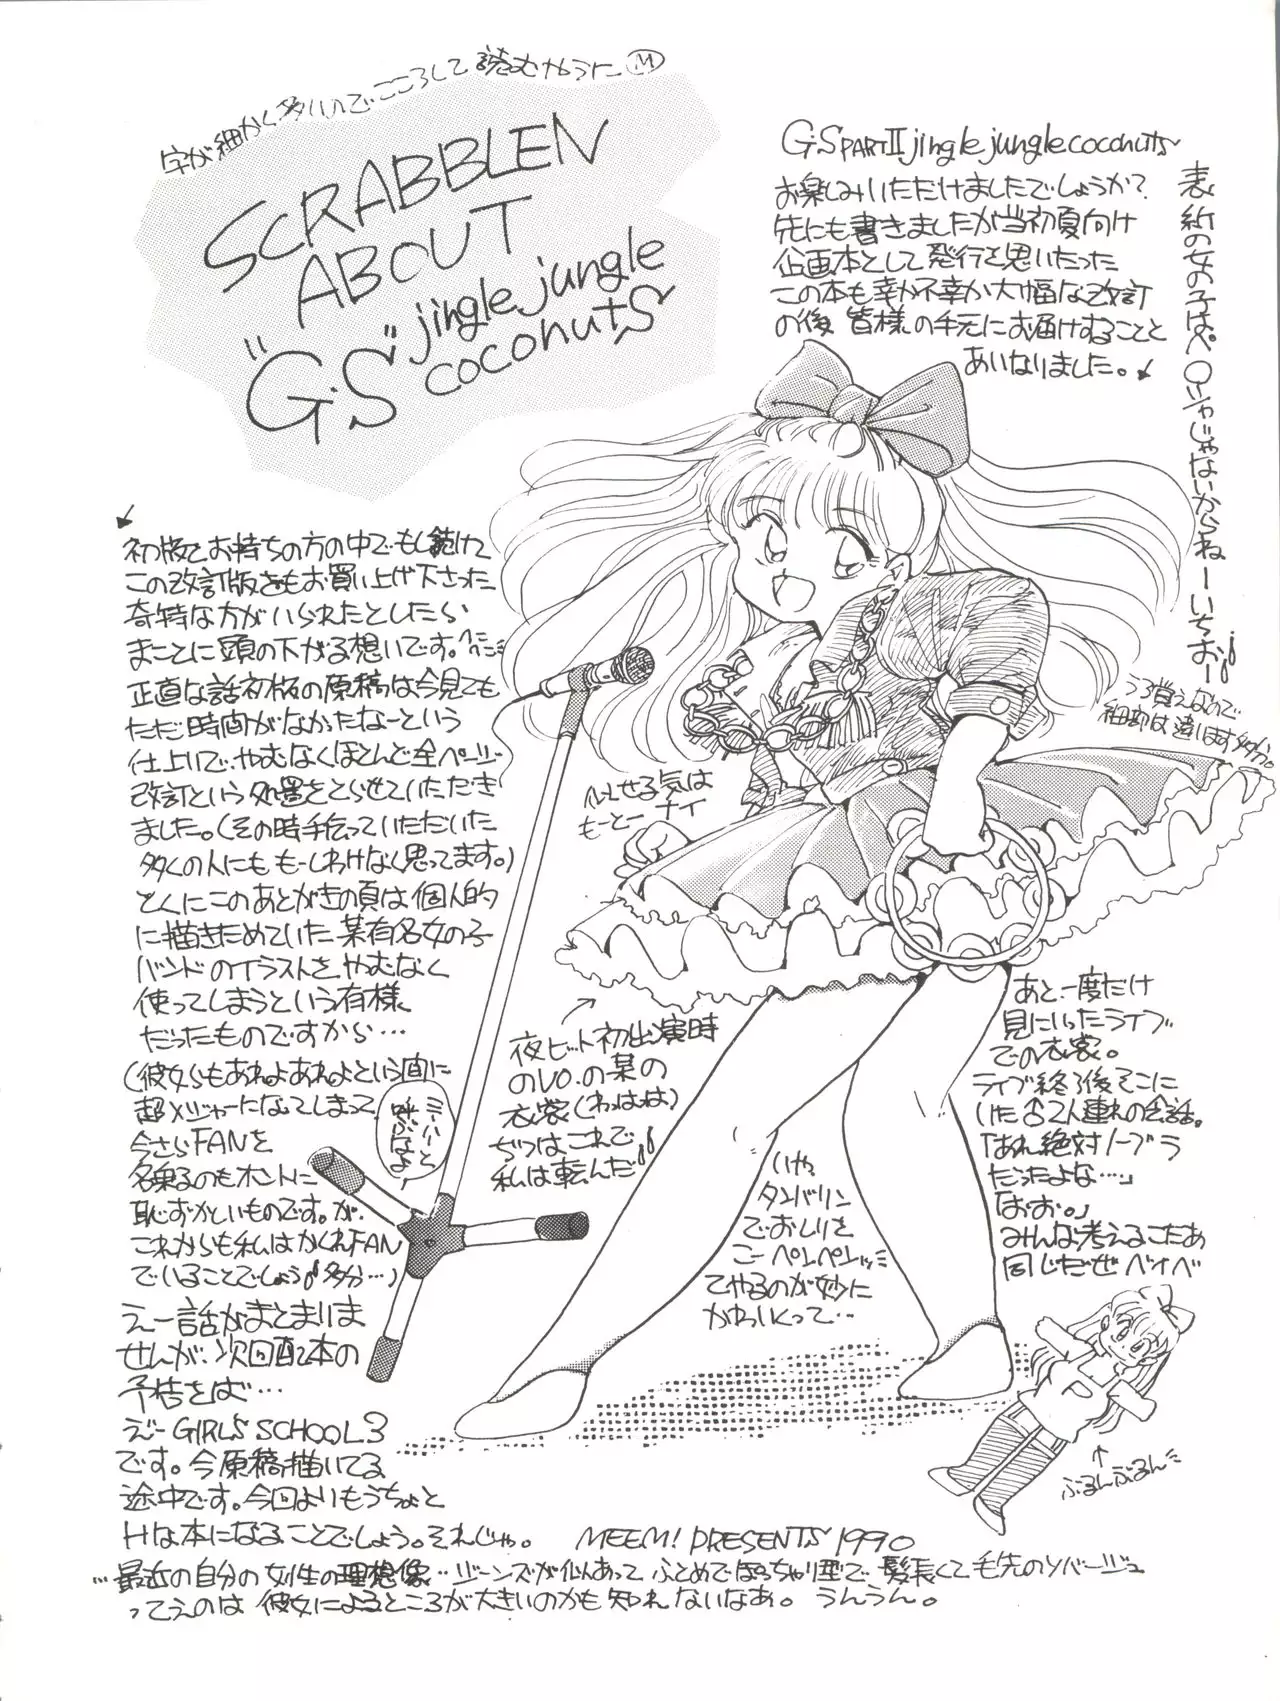 字が細かく多いのでこころして読むやうに Ⓜ
SCRABBLEN
ABOUT
"G.S" jingle jungle
coconuts
G.S PART II jingle jungle coconuts
お楽しみいただけましたでしょうか?
先にも書きましたが当初夏向け
企画本として発行を思いたった
この本も幸か不幸か大幅な改訂
の後 皆様の手元にお届けすることと
あいなりました。
表紙の女の子はペ〇ジャじゃないからねーいちおー!!
うろ覚えなので
細部は違います多分。
初版をお持ちの方の中でもし続けて
この改訂版をもお買い上げ下さった
奇特な方がいられたとしたら
まことに頭の下がる想いです。ペコペコ
正直な話初版の原稿は今見ても
ただ時間がなかったなーという
仕上いで、やむなくほとんど全ページ
改訂という処置をとらせていただき
ました。(その時手伝っていただいた
多くの人にももーしわけなく思ってます。)
とくにこのあとがきの頁は個人的
に描きためていた某有名女の子
バンドのイラストを、やむなく
使ってしまうという有様
だったものですから…
(彼女らもあれよあれよという間に
超メジャーになってしまって
今さらFANを
名乗るのもホントに
恥ずかしいものです。が、
これからも私はかくれFAN
でいることでしょう♪多分…)
ミーハーと
呼ぶなよ
えー話がまとまりま
せんが、次回配本の
予告をば…
えー GIRL'S SCHOOL 3
です。今原稿描いてる
途中です。今回よりもうちょと
Hな本になることでしょう。それじゃ。
MEEM! PRESENTS 1990
にせる気は
もーとーナイ
夜ヒット初出演時
のVO.の某の
衣裳(わはは)
ぢつはこれで
私は転んだ!!
いや
タンバリン
でおしりを
こーペンペンッ
てやるのが妙に
かわいくって…
あと、一度だけ
見にいったライブ
での衣裳。
ライブ終了後そこに
いた♂2人連れの会話。
「あれ絶対ノーブラ
だったよな…」
「おお。」
みんな考えるこたあ
同じだぜ ベイベ
ぶるんぶるん
…最近の自分の女性の理想像…ジーンズが似あって ふとめでぽっちゃり型で、髪長くて毛先のソバージュ
ってえのは 彼女によるところが大きいのかも知れないなあ。うんうん。